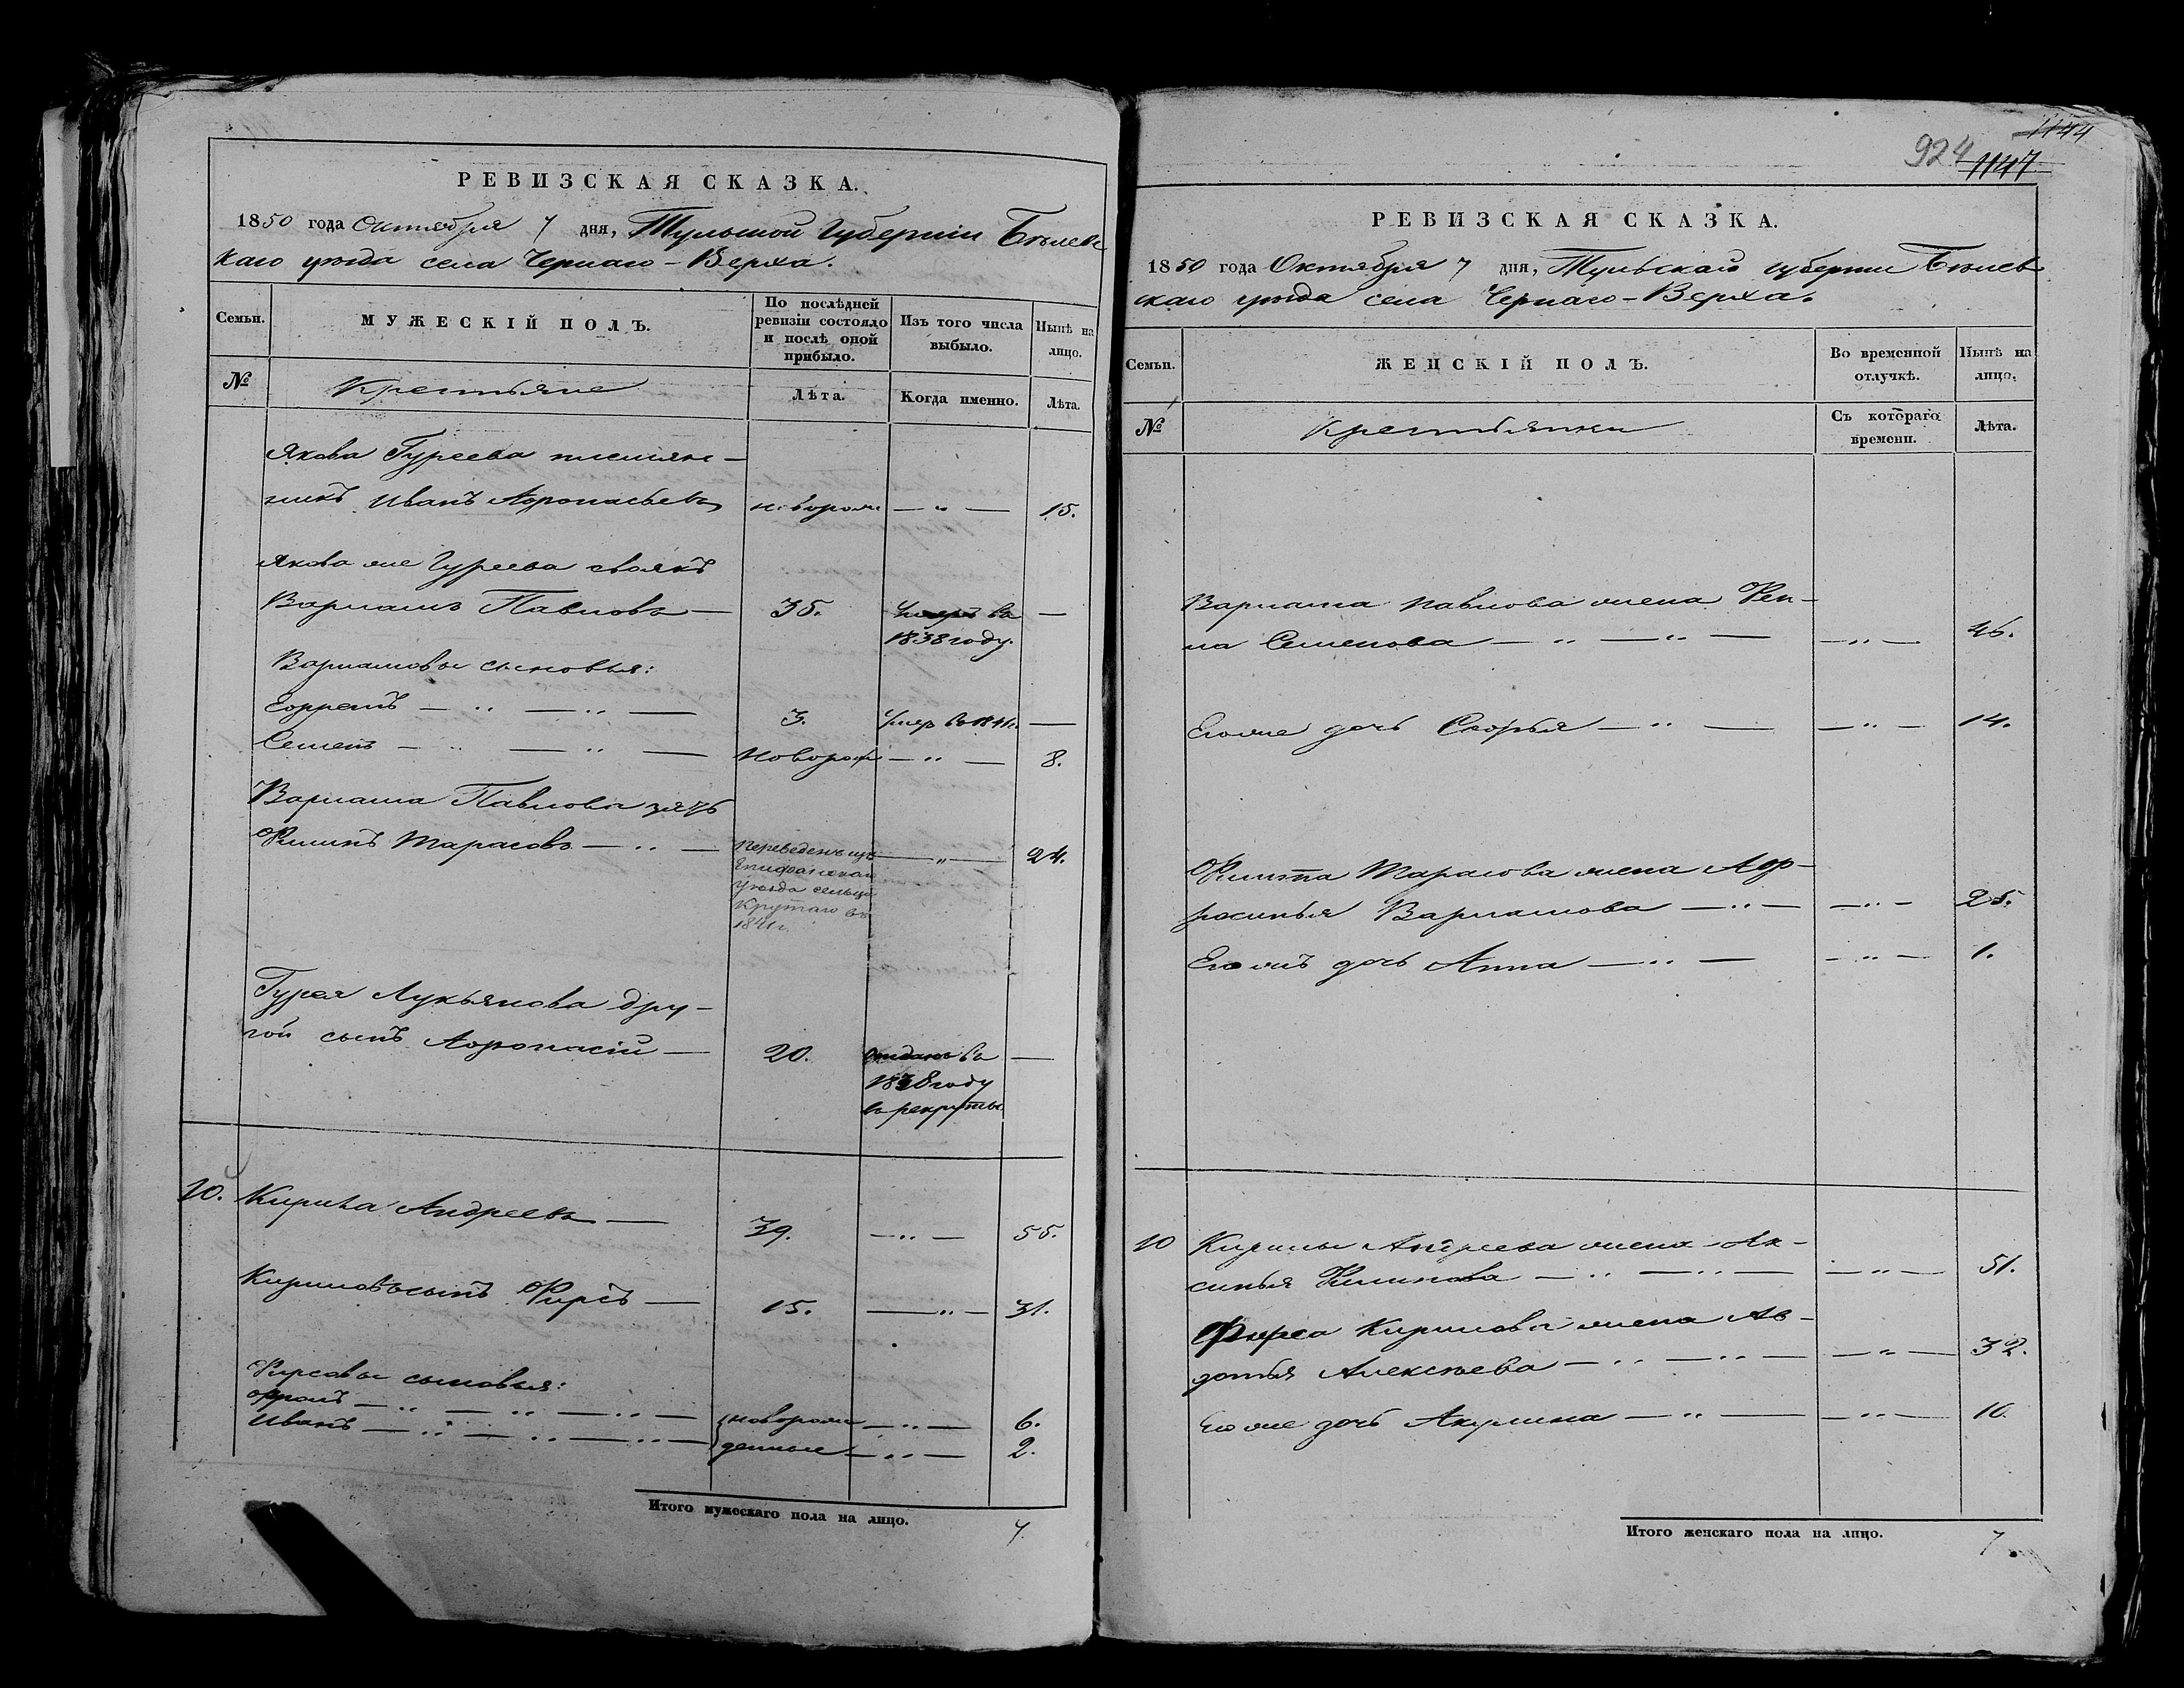 РЕВИЗСКАЯ СКАЗКА.
1850 года Октября 7 дня, Тульской Губерніи Бѣлевс
каго уѣзда села Чернаго-Верха.
Семьи.
МУЖЕСКІЙ ПОЛЪ.
По послѣдней ревизіи состояло и послѣ оной прибыло.
Изъ того числа выбыло.
Нынѣ на лицо.
№
Крестьяне
Лѣта.
Когда именно.
Лѣта.
Якова Гуреева племян-
никъ Иванъ Афонасьевъ новорож — " — 15.
Якова же Гуреева своякъ
Варламъ Павловъ — 35. Умеръ въ —
1838 году.
Варламовы сыновья:
Ефремъ — " — " — 3. Умеръ въ 1841г. —
Семенъ — " — " — новорож — " — 8.
Варлама Павлова зять
Филипъ Тарасовъ — " — переведенъ изъ — " — 24.
Епифанскаго
уѣзда сельца
Крутаго въ
1841г.
Гурея Лукьянова дру-
гой сынъ Афонасій — 20. отданъ въ —
1838 году
въ рекруты.
10. Кирила Андреевъ — 39. — " — 55.
Кириловъ сынъ Фирсъ — 15. — " — 31.
Фирсовы сыновья:
Фролъ — " — " — " — новорож — " — 6.
Иванъ — " — " — " — денные — " — 2.
Итого мужескаго пола на лицо. 7.
1144
924 1147
РЕВИЗСКАЯ СКАЗКА.
1850 года Октября 7 дня, Тульской губерніи Бѣлев
скаго уѣзда села Чернаго-Верха.
Семьи.
ЖЕНСКІЙ ПОЛЪ.
Во временной отлучкѣ.
Нынѣ на лицо.
№
Крестьянки
Съ котораго времени.
Лѣта.
Варлама Павлова жена Фек-
ла Семенова — " — " — — " — 46.
Его же дочь Софья — " — — " — 14.
Филипа Тарасова жена Аф-
росинья Варламова — " — — " — 25.
Его жъ дочь Анна — " — — " — 1.
10 Кирилы Андреева жена Ак-
синья Филипова — " — " — — " — 51.
Фирса Кирилова жена Ав-
дотья Алексѣева — " — " — — " — 32.
Его же дочь Акулина — " — — " — 10.
Итого женскаго пола на лицо. 7